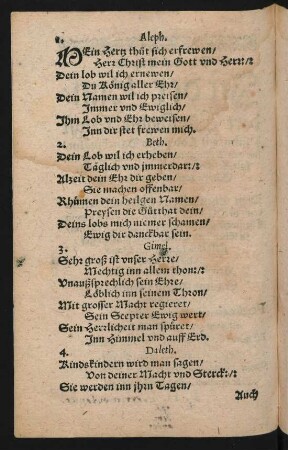 1. Aleph.
MEin Hertz thůt sich erfrewen/
Herr Christ mein Gott vnd Herr:/:
Dein lob wil ich ernewen/
Du König aller Ehr/
Dein Namen wil ich preisen/
Immer vnd Ewiglich/
Ihm Lob vnd Ehr beweisen/
Inn dir stet frewen mich.
2. Beth.
Dein Lob wil ich erheben/
Täglich vnd jmmerdar:/:
Alzeit dein Ehr dir geben/
Sie machen offenbar/
Rhümen dein heilgen Namen/
Preysen die Gütthat dein/
Deins lobs mich nicmer schamen/
Ewig dir danckbar sein.
3. Gimel.
Sehr groß ist vnser Herre/
Mechtig inn allem thon:/:
Vnaußsprechlich sein Ehre/
Löblich inn seinem Thron/
Mit grosser Macht regieret/
Sein Scepter Ewig wert/
Sein Herrlicheit man spüret/
Inn Himmel vnd auff Erd.
4. Daleth.
Kindskindern wird man sagen/
Von deiner Macht vnd Sterck:/:
Sie werden inn jhrn Tagen/
Auch